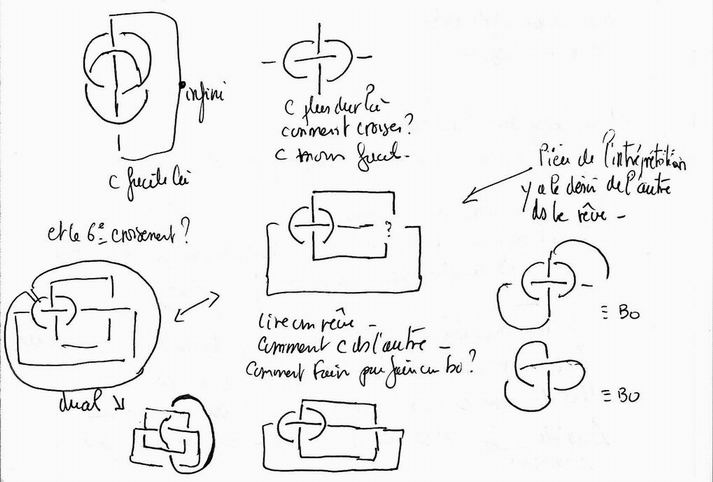 infini
C facile là
C plus dur là
comment croiser?
C moins facil.
et le 6e croisement?
?
lieu de l'interprétation
y a le désir de l'autre
ds le rêve –
≡ Bo
≡ Bo
lire un rêve –
Comment C ds l'autre –
Comment faire pour faire un bo?
dual